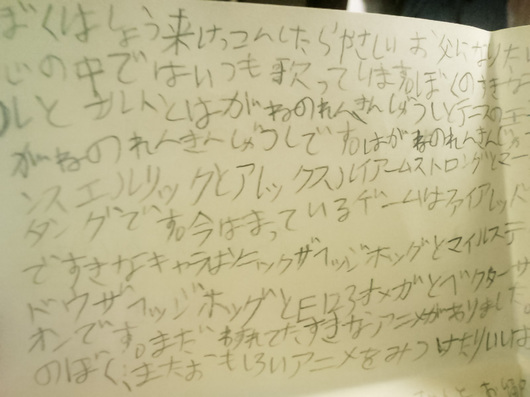 ぼくはしょう来けっこんしたらやさしいお父になりたい
じの中ではいつも歌っています。ぼくのすきな
ルとナルトとはがねのれんきんじゅつしとテニスの王
がねのれんきんじゅつしです。はがねのれんきんじゅ
ンスエルリックとアレックスルイアームストロングとマー
タングです。今はまっているゲームはファイアレッド
ですきなキャラはソニックザヘッジホッグとマイルステ
ドウザヘッジホッグとE123オメガとベクターザ
オンです。まだわすれてたすきなアニメがありました。
のぼく、またおもしろいアニメをみつけたりいしは